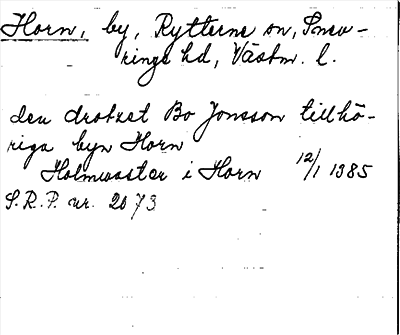 Horn, by, Rytterne sn, Snev-
ringe hd, Västm. l.
den drotzet Bo Jonsson tillhö-
riga byn Horn
Holmwaster i Horn 12/1 1385
S.R.P. nr. 2073